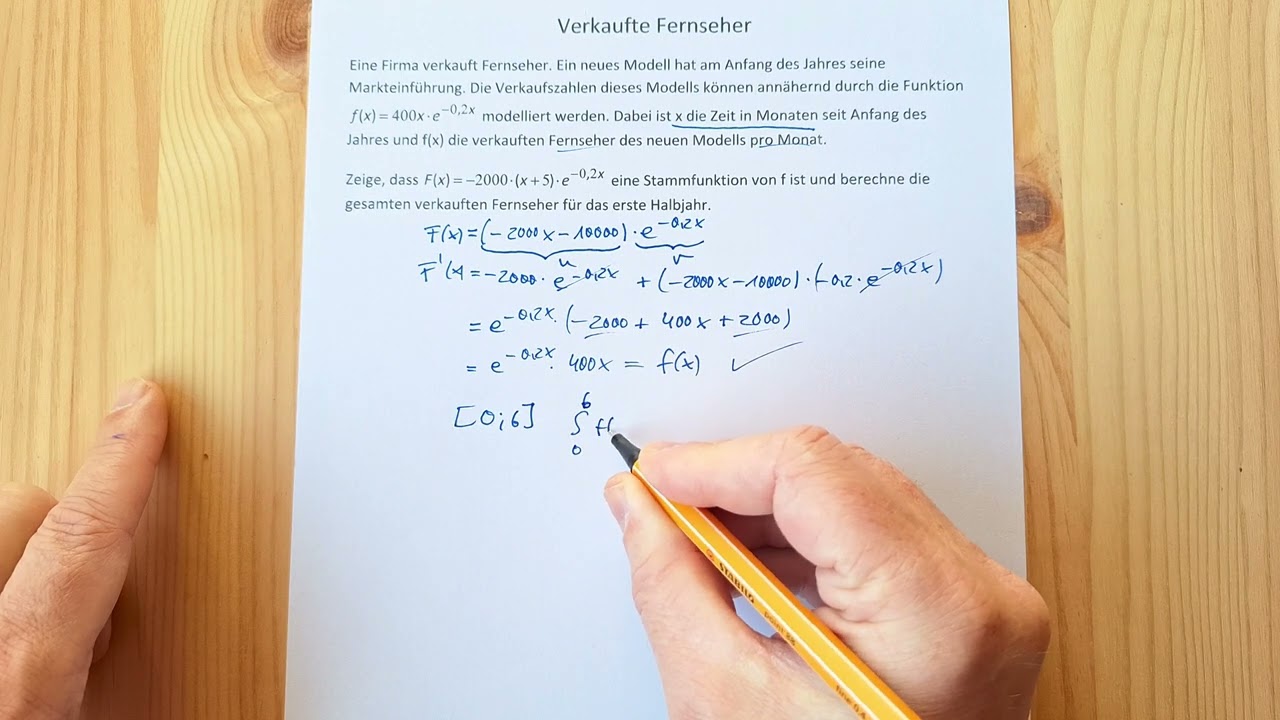 Verkaufte Fernseher
Eine Firma verkauft Fernseher. Ein neues Modell hat am Anfang des Jahres seine
Markteinführung. Die Verkaufszahlen dieses Modells können annähernd durch die Funktion
f(x) = 400x · e^−0,2x modelliert werden. Dabei ist x die Zeit in Monaten seit Anfang des
Jahres und f(x) die verkauften Fernseher des neuen Modells pro Monat.
Zeige, dass F(x) = −2000 · (x + 5) · e^−0,2x eine Stammfunktion von f ist und berechne die
gesamten verkauften Fernseher für das erste Halbjahr.
F(x) = (−2000x − 10000) · e^−0,2x
u v
F'(x) = −2000 · e^−0,2x + (−2000x − 10000) · (−0,2 · e^−0,2x)
= e^−0,2x · (−2000 + 400x + 2000)
= e^−0,2x · 400x = f(x) ✓
[0;6] ∫₀⁶ f(
STABILO point 88 fine 0,4